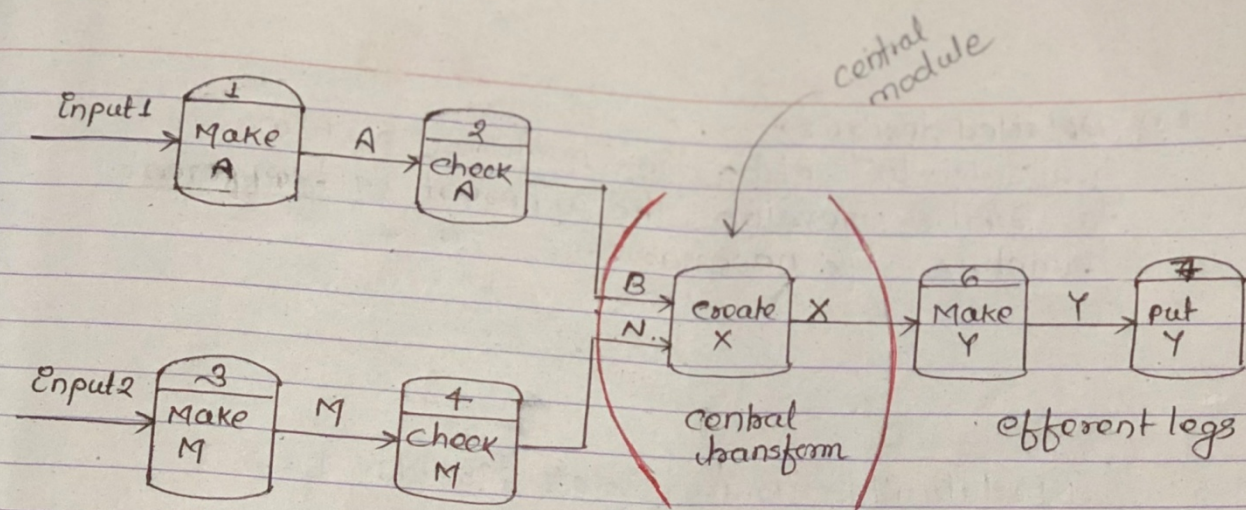 central
module
Input1
1
Make
A
A
2
check
A
B
N.
create
X
X
6
Make
Y
Y
7
put
Y
Input2
3
Make
M
M
4
check
M
central
transform
efferent legs